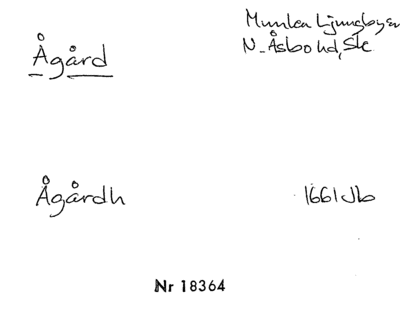 Ågård
Munka Ljungbysn
N. Åsbo hd, Sk
Ågårdh
1661 Jb
Nr 18364